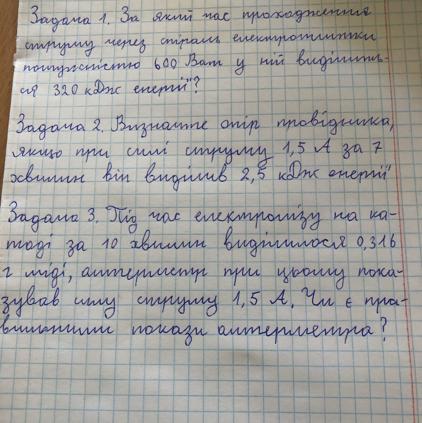 Задача 1. За який час проходження
струму через спіраль електроплитки
потужністю 600 Ват у ній виділить-
ся 320 кДж енергії?
Задача 2. Визначте опір провідника,
якщо при силі струму 1,5 А за 7
хвилин він виділив 2,5 кДж енергії
Задача 3. Під час електролізу на ка-
тоді за 10 хвилин виділилося 0,316
г міді, амперметр при цьому пока-
зував силу струму 1,5 А. Чи є пра-
вильними покази амперметра?